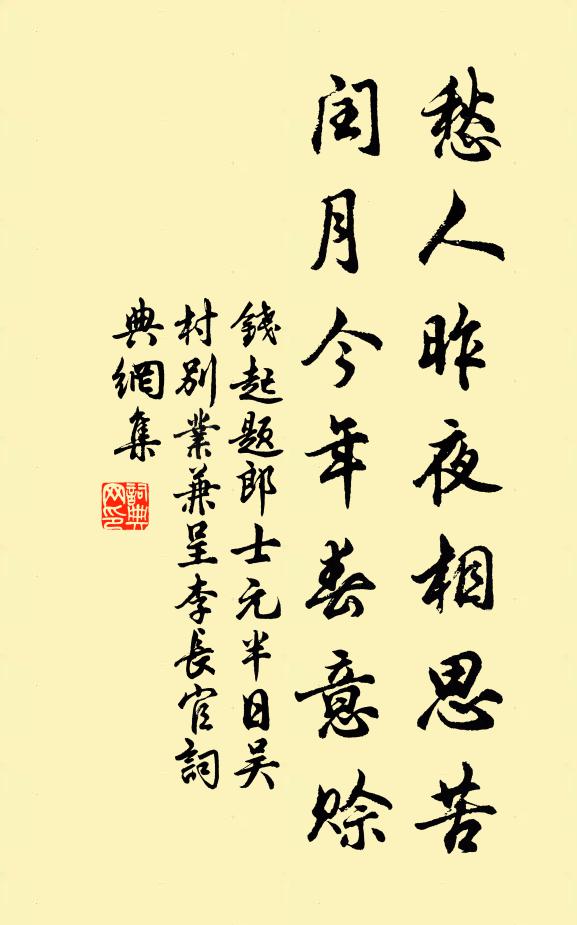 愁人昨夜相思苦
闰月今年春意赊
錢起題郎士元半日吴
村别業兼呈李長官詞
典網集
詞典
网印